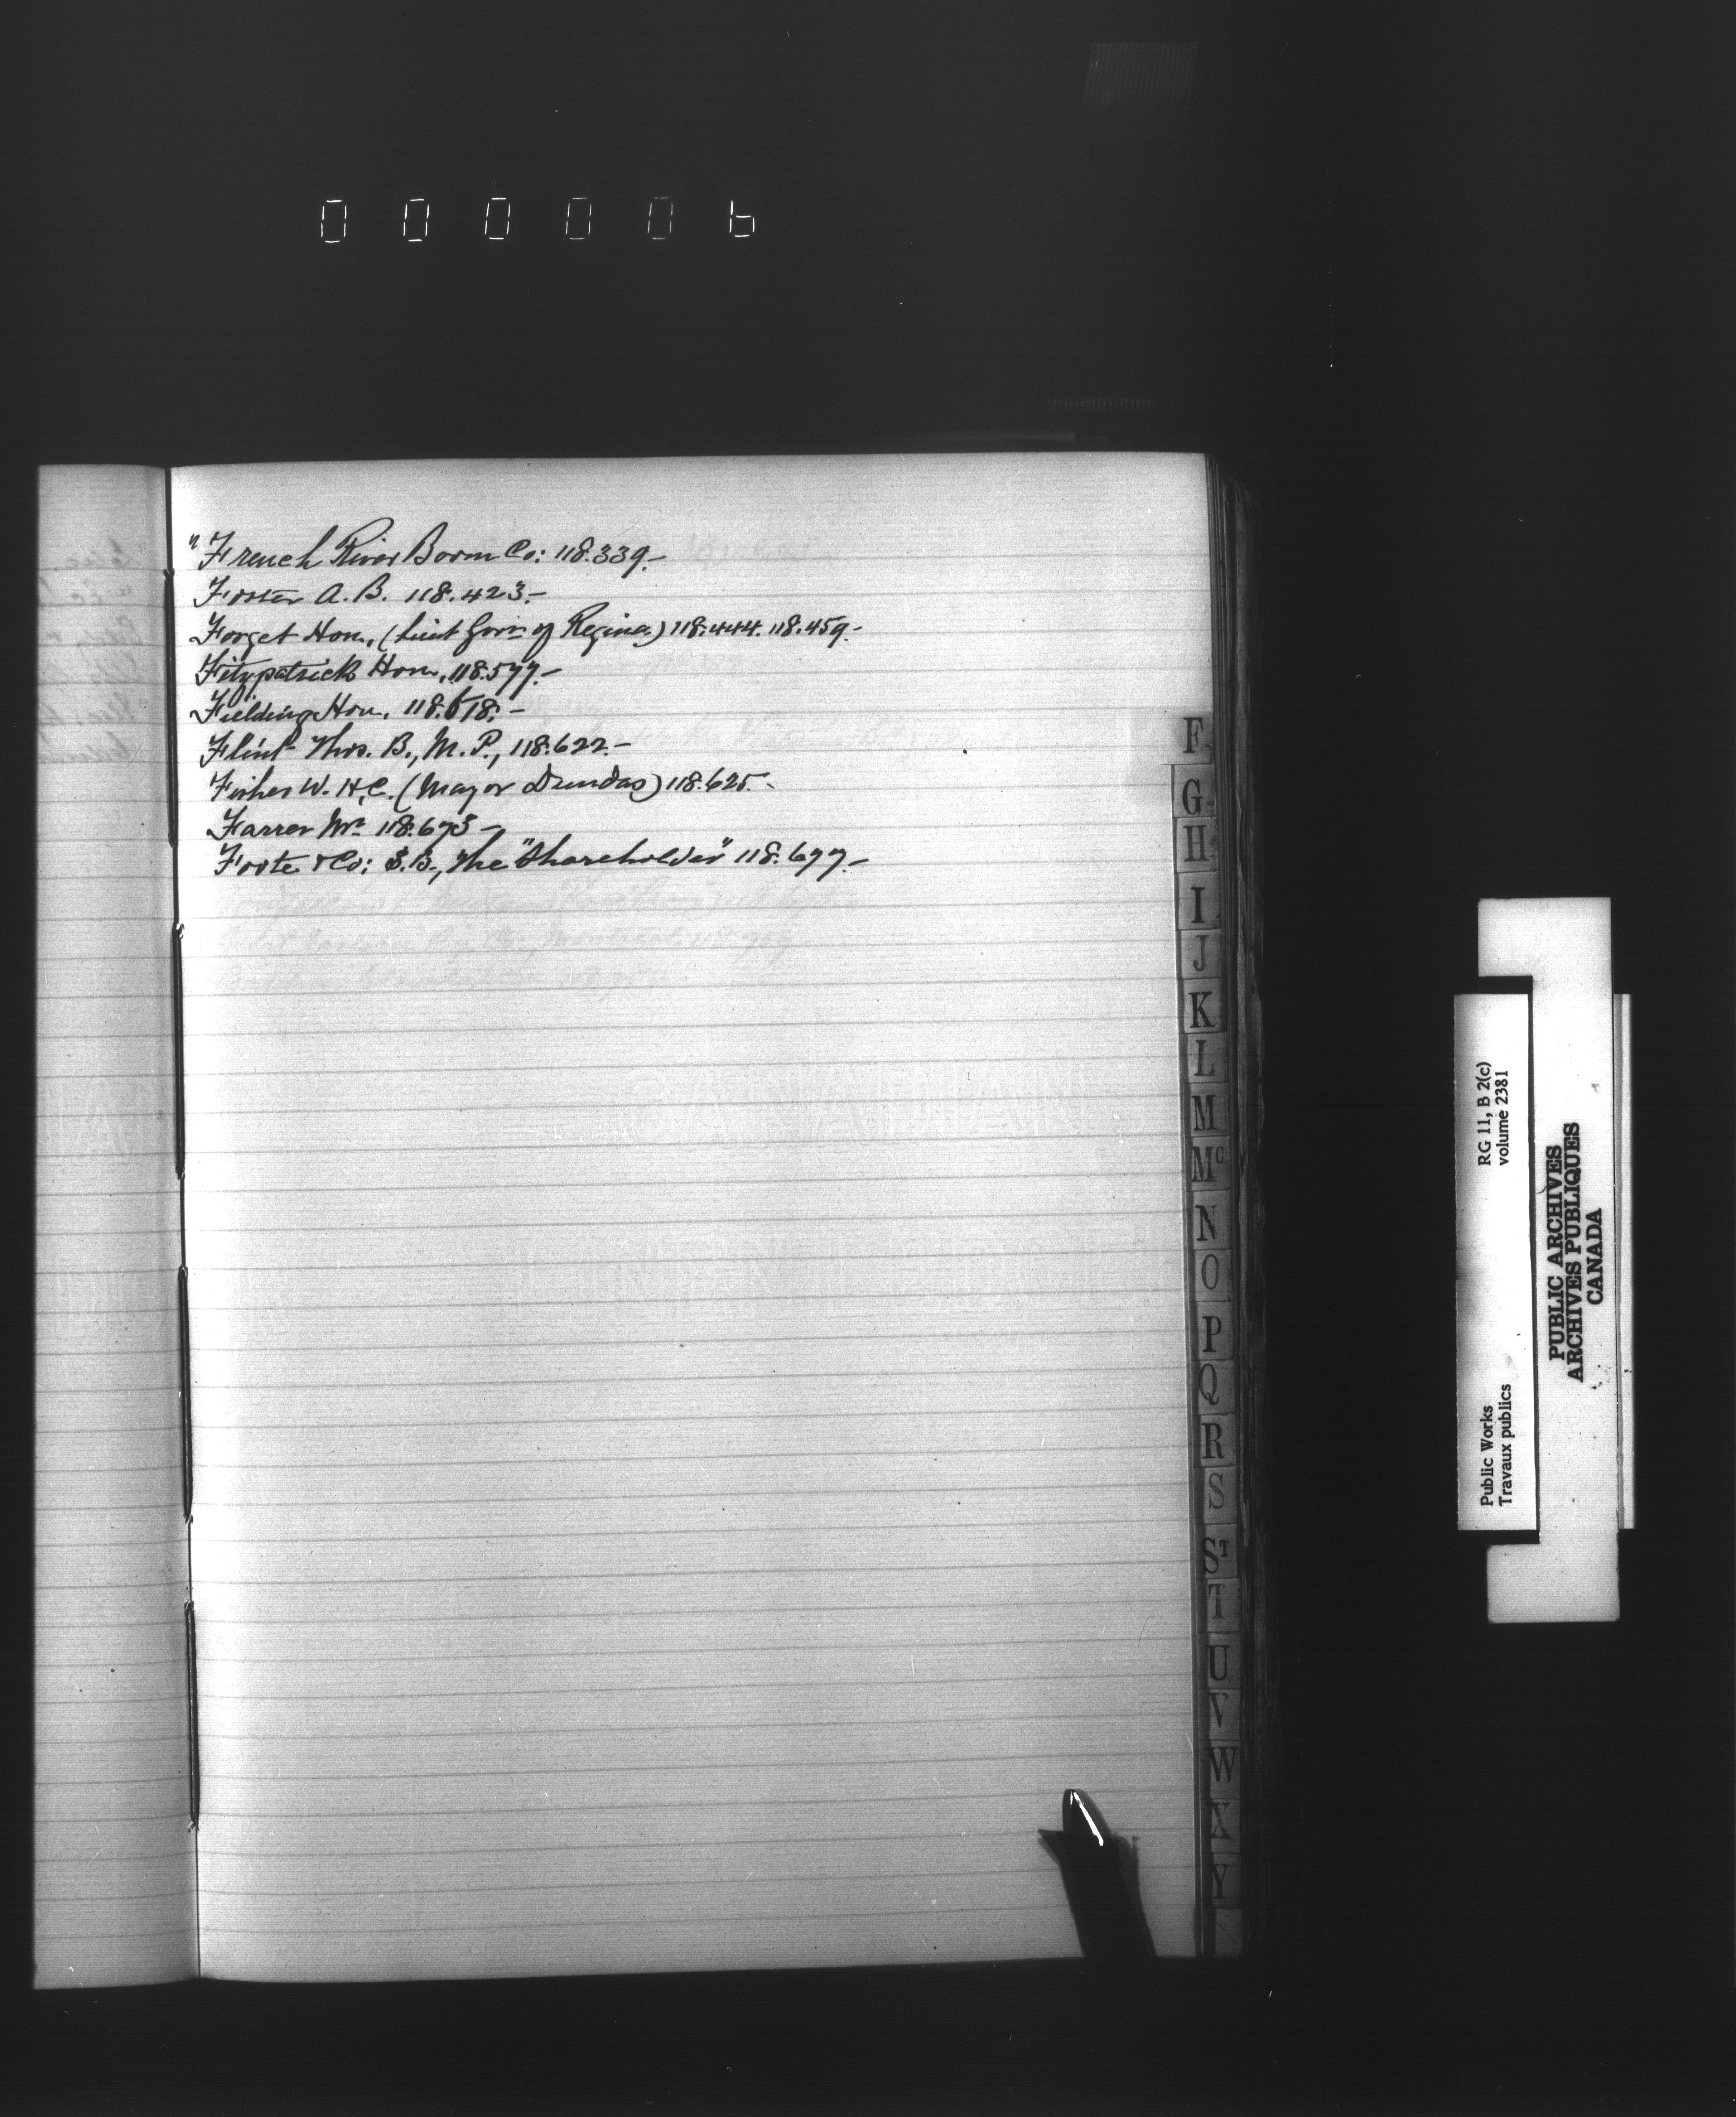 000006
"French River Boom Co: 118.339.-
Foster A. B. 118.423.-
Forget Hon, (Lieut Govr of Regina) 118.444. 118.459.-
Fitzpatrick Hon, 118.577.-
Fielding Hon, 118.618.-
Flint Thos. B., M. P., 118.622.-
Fisher W. H.C. (Mayor Dundas) 118.625.-
Farrer Mr 118.673-
Foote & Co: S.B., The "Shareholder" 118.677.-
F
G
H
I
J
K
L
M
Mc
N
O
P
Q
R
S
ST
T
U
V
W
X
Y
Public Works
Travaux publics
RG 11, B 2(c)
volume 2381
PUBLIC ARCHIVES
ARCHIVES PUBLIQUES
CANADA